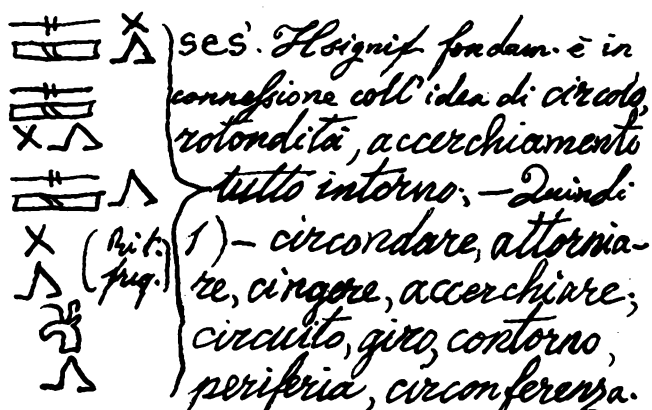 ses'. Il signif. fondam. è in
connessione coll'idea di circolo,
rotondità, accerchiamento
tutto intorno; — Quindi
(Rit. freq.) 1) — circondare, attornia-
re, cingere, accerchiare;
circuito, giro, contorno,
periferia, circonferenza.